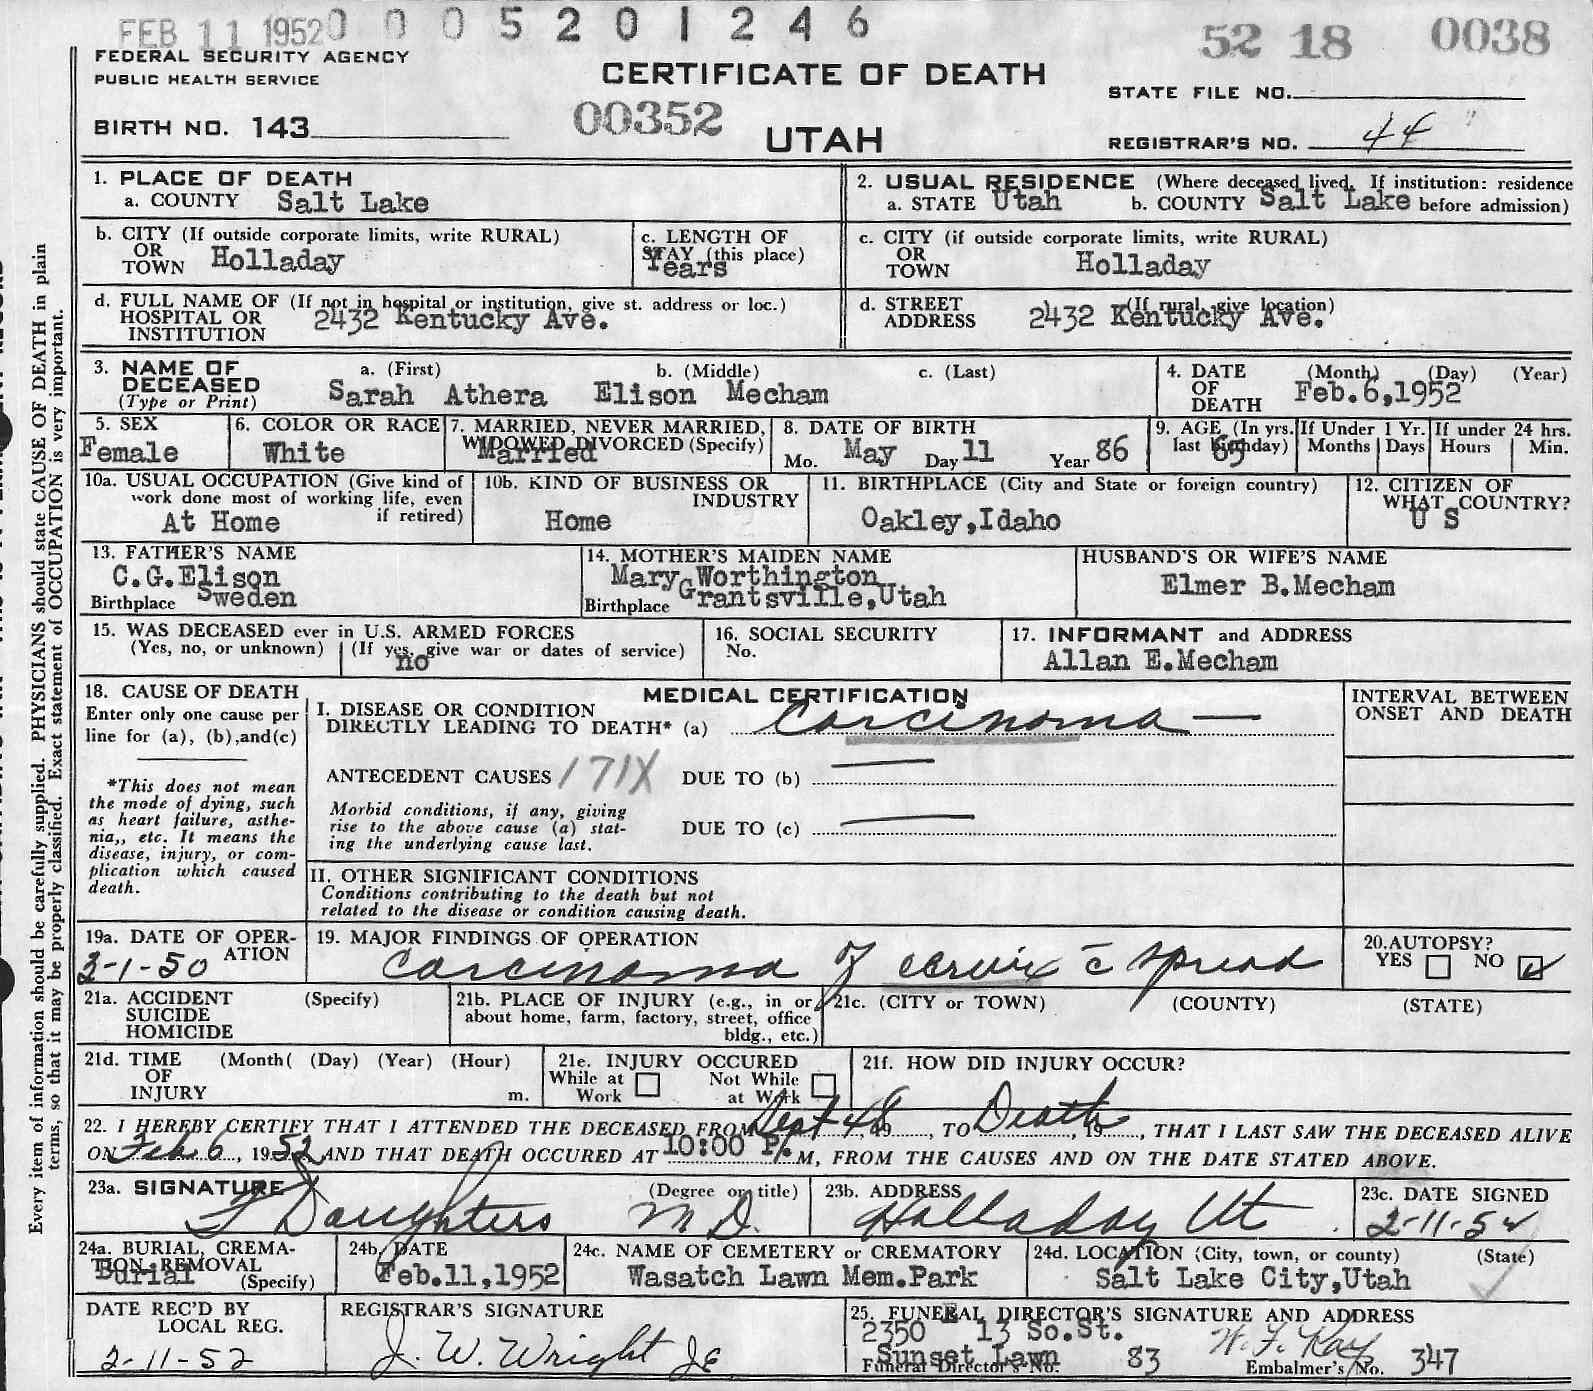 FEB 11 1952 0 0 0 5 2 0 1 2 4 6
52 18 0038
FEDERAL SECURITY AGENCY
PUBLIC HEALTH SERVICE
CERTIFICATE OF DEATH
STATE FILE NO.
BIRTH NO. 143
00352
UTAH
REGISTRAR'S NO. 44
Every item of information should be carefully supplied. PHYSICIANS should state CAUSE OF DEATH in plain
terms, so that it may be properly classified. Exact statement of OCCUPATION is very important.
1. PLACE OF DEATH
a. COUNTY Salt Lake
2. USUAL RESIDENCE (Where deceased lived. If institution: residence
a. STATE Utah b. COUNTY Salt Lake before admission)
b. CITY (If outside corporate limits, write RURAL)
OR
TOWN Holladay
c. LENGTH OF
STAY (this place)
Years
c. CITY (if outside corporate limits, write RURAL)
OR
TOWN Holladay
d. FULL NAME OF (If not in hospital or institution, give st. address or loc.)
HOSPITAL OR
INSTITUTION 2432 Kentucky Ave.
d. STREET (If rural, give location)
ADDRESS 2432 Kentucky Ave.
3. NAME OF
DECEASED
(Type or Print)
a. (First) b. (Middle) c. (Last)
Sarah Athera Elison Mecham
4. DATE
OF
DEATH
(Month) (Day) (Year)
Feb.6,1952
5. SEX
Female
6. COLOR OR RACE
White
7. MARRIED, NEVER MARRIED,
WIDOWED DIVORCED (Specify)
Married
8. DATE OF BIRTH
Mo. May Day 11 Year 86
9. AGE (In yrs.
last birthday)
65
If Under 1 Yr.
Months Days
If under 24 hrs.
Hours Min.
10a. USUAL OCCUPATION (Give kind of
work done most of working life, even
if retired)
At Home
10b. KIND OF BUSINESS OR
INDUSTRY
Home
11. BIRTHPLACE (City and State or foreign country)
Oakley,Idaho
12. CITIZEN OF
WHAT COUNTRY?
U S
13. FATHER'S NAME
C.G.Elison
Birthplace Sweden
14. MOTHER'S MAIDEN NAME
Mary Worthington
Birthplace Grantsville,Utah
HUSBAND'S OR WIFE'S NAME
Elmer B.Mecham
15. WAS DECEASED ever in U.S. ARMED FORCES
(Yes, no, or unknown) (If yes, give war or dates of service)
no
16. SOCIAL SECURITY
No.
17. INFORMANT and ADDRESS
Allan E.Mecham
18. CAUSE OF DEATH
Enter only one cause per
line for (a), (b),and(c)
*This does not mean
the mode of dying, such
as heart failure, asthe-
nia,, etc. It means the
disease, injury, or com-
plication which caused
death.
MEDICAL CERTIFICATION
I. DISEASE OR CONDITION
DIRECTLY LEADING TO DEATH* (a) Carcinoma —
ANTECEDENT CAUSES 171X DUE TO (b) —
Morbid conditions, if any, giving
rise to the above cause (a) stat-
ing the underlying cause last.
DUE TO (c) —
II. OTHER SIGNIFICANT CONDITIONS
Conditions contributing to the death but not
related to the disease or condition causing death.
INTERVAL BETWEEN
ONSET AND DEATH
19a. DATE OF OPER-
ATION
2-1-50
19. MAJOR FINDINGS OF OPERATION
Carcinoma of cervix c̄ spread
20.AUTOPSY?
YES NO
21a. ACCIDENT (Specify)
SUICIDE
HOMICIDE
21b. PLACE OF INJURY (e.g., in or
about home, farm, factory, street, office
bldg., etc.)
21c. (CITY or TOWN) (COUNTY) (STATE)
21d. TIME (Month( (Day) (Year) (Hour)
OF
INJURY m.
21e. INJURY OCCURED
While at Not While
Work at Work
21f. HOW DID INJURY OCCUR?
22. I HEREBY CERTIFY THAT I ATTENDED THE DECEASED FROM Sept 48, 19, TO Death, 19, THAT I LAST SAW THE DECEASED ALIVE
ON Feb. 6, 1952 AND THAT DEATH OCCURED AT 10:00 P.M, FROM THE CAUSES AND ON THE DATE STATED ABOVE.
23a. SIGNATURE (Degree or title)
Daughters M D.
23b. ADDRESS
Holladay Ut
23c. DATE SIGNED
2-11-52
24a. BURIAL, CREMA-
TION REMOVAL
Burial (Specify)
24b. DATE
Feb.11,1952
24c. NAME OF CEMETERY or CREMATORY
Wasatch Lawn Mem.Park
24d. LOCATION (City, town, or county) (State)
Salt Lake City,Utah
DATE REC'D BY
LOCAL REG.
2-11-52
REGISTRAR'S SIGNATURE
J. W. Wright
25. FUNERAL DIRECTOR'S SIGNATURE AND ADDRESS
2350 E 13 So.St. W. F. Kay
Sunset Lawn
Funeral Director's No. 83 Embalmer's No. 347